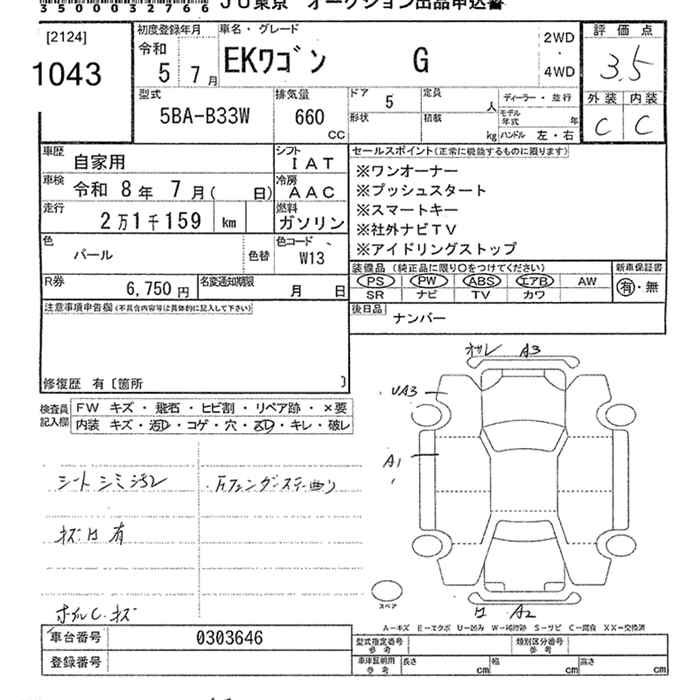 35000327 66
JU東京 オークション出品申込書
[2124]
1043
初度登録年月
令和
5 7月
車名・グレード
EKワゴン G
2WD
・
4WD
評価点
3.5
外装 内装
C C
型式
5BA-B33W
排気量
660
CC
ドア 5
形状
定員
人
積載
kg
ディーラー・並行
モデル年式 年
ハンドル 左・右
車歴
自家用
車検
令和 8年 7月( 日)
走行
2万1千159 km
シフト
IAT
冷房
AAC
燃料
ガソリン
色
パール
色替
色コード
W13
R券
6,750円
名変通知期限
月 日
セールスポイント(正常に機能するものに限ります)
※ワンオーナー
※プッシュスタート
※スマートキー
※社外ナビTV
※アイドリングストップ
装備品(純正品に限り○をつけてください)
PS PW ABS エアB AW
SR ナビ TV カワ
新車保証書
有・無
後日品
ナンバー
注意事項申告欄(不具合内容等は具体的に記入して下さい)
修復歴 有〔箇所 〕
検査員記入欄
FW キズ・飛石・ヒビ割・リペア跡・×要
内装 キズ・汚レ・コゲ・穴・スレ・キレ・破レ
シートシミ汚レ
キズ 有
ホイルC.キズ
曲り
A3
UA3
A1
A2
スペア
A-キズ E-エクボ U-凹み W-補修跡 S-サビ C-腐食 XX-交換済
車台番号 0303646
登録番号
型式指定番号
参考
類別区分番号
参考
車庫証明用
参考
長さ cm 幅 cm 高さ cm